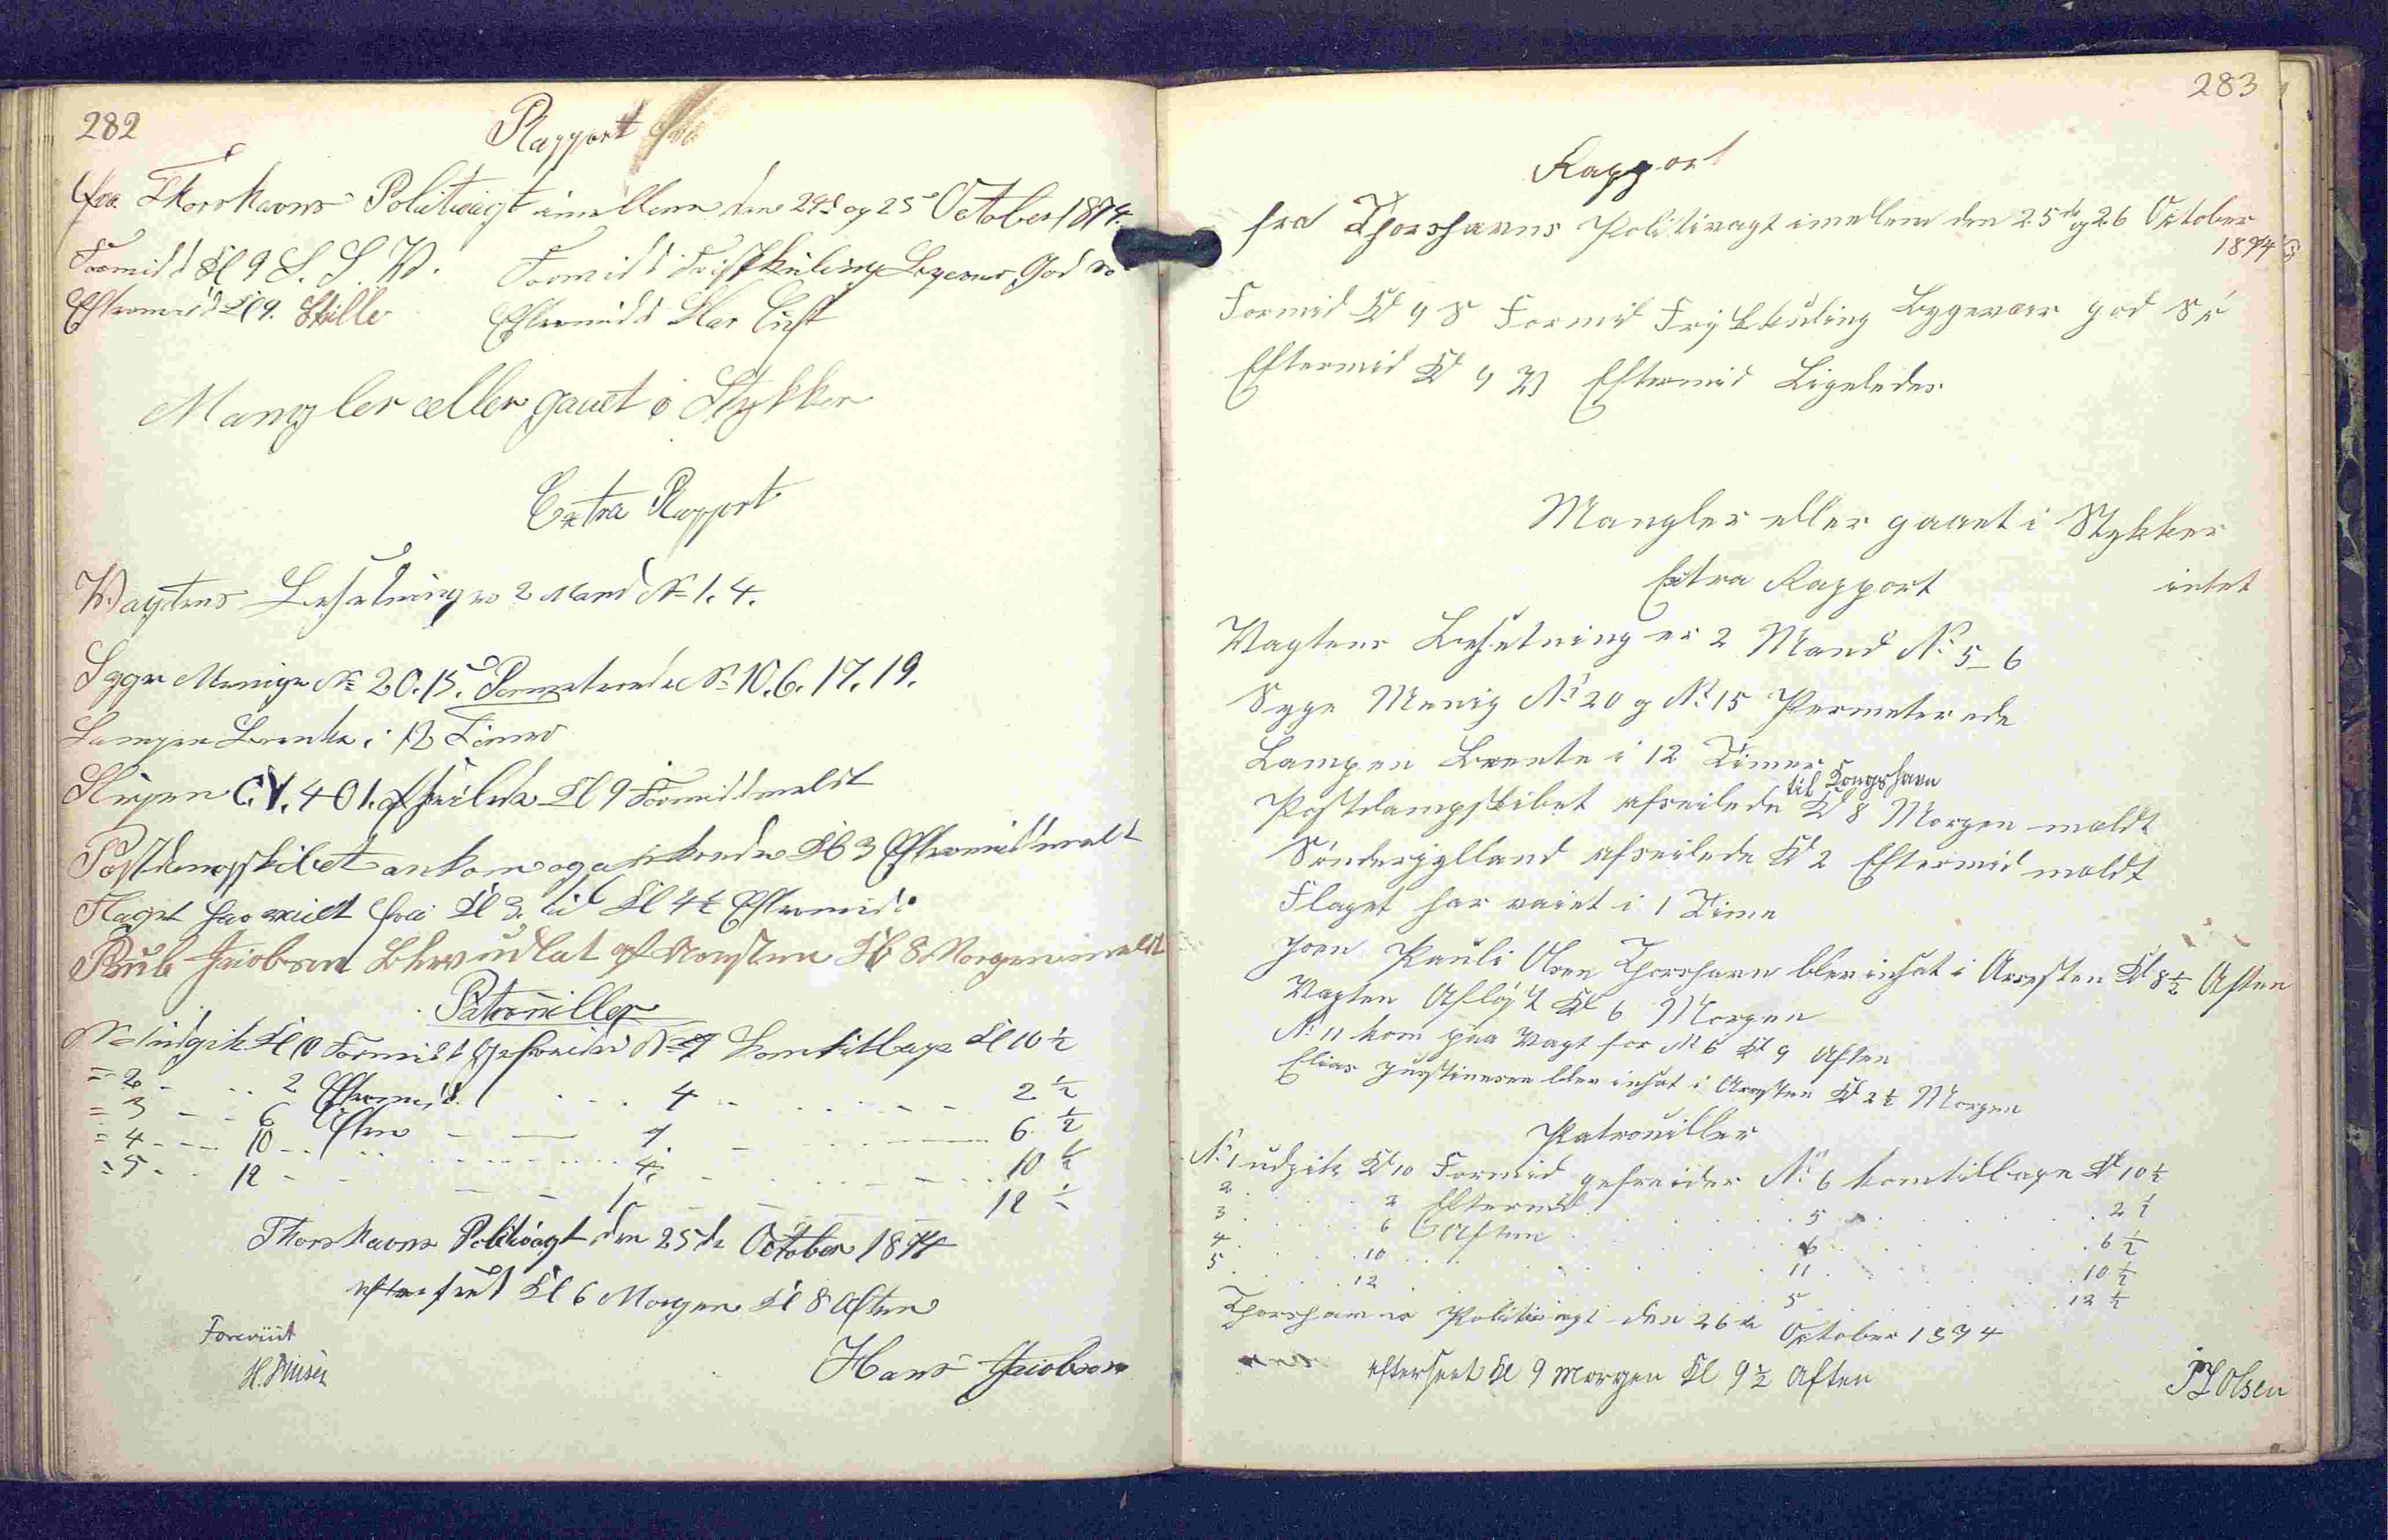 282
Rapport
fra Thorshavns Politivagt imellem den 24d og 25d October 1874.
Formidd Kl 9 S. S. V. Formidd Friskkuling Bygevær God
Eftermid Kl 9. Stille Eftermidd Klar Luft
Mangler eller gaaet i Stykker
Extra Rapport
Wagtens Besætning er 2 Mand No 1. 4.
Syge Menige No 20. 15. Permeterede No 10. 6. 17. 19.
Lampen Brente i 12 Timer
Slupen C.Y. 401. afseilede Kl 9 Formidd meldt
Postdampskibet ankom og ankrede Kl 3 Eftermidd meldt
Flaget har vaiet fra Kl 3. til Kl 4½ Eftermidd.
Jacobsen Blev udlat af Aresten Kl 8 Morgen meldt
Patrouiller
No 1 udgik Kl 10 Formidd Gefreider No 4 komtilbage Kl 10½
= 2 - - 2 Eftermid. - - - 4 - - - - 2½
= 3 - - 6 Aften - - 1 - - 6½
= 4 - - 10 - - - - 4 - - - 10½
= 5 - - 12 - - - - 1 - - - 12½
Thorshavns Politivagt den 25de October 1874
efterseet Kl 6 Morgen Kl 8 Aften
Foreviist
Hans Jacobsen
283
Rapport
fra Thorshavns Politivagt imellem den 25de og 26 October
1874
Formid Kl 9 S Formid Friskkuling Bygevær god
Eftermid Kl 9 V Eftermid Ligeledes
Mangler eller gaaet i Stykker
intet
Extra Rapport
Vagtens Besetning er 2 Mand No 5_6
Syge Menig No 20 g No 15 Permeterede
Lampen Brente i 12 Timer
til Kongshavn
Postdampskibet afseilede Kl 8 Morgen meldt
Sönderjylland afseilede Kl 2 Eftermid meldt
Flaget har vaiet i 1 Time
Joen Pauli Olsen Thorshavn blev insat i Arresten Kl 8½ Aften
Vagten Aflöst Kl 6 Morgen
No 11 kom paa Vagt for No 6 Kl 9 Aften
Elias Justinesen blev insat i Arresten Kl 2½ Morgen
Patrouiller
No 1 udgik Kl 10 Formid gefreider No 6 komtilbage Kl 10½
2 . . . 2 Eftermid . . . 5 . . . 2½
3 . . . 6 Aften . . . 6 . . . 6½
4 . . . 10 . . . 11 . . . 10½
5 . . . 12 . . . 5 . . . 12½
Thorshavns Politivagt den 26de October 1874
efterseet Kl 9 Morgen Kl 9½ Aften
Olsen